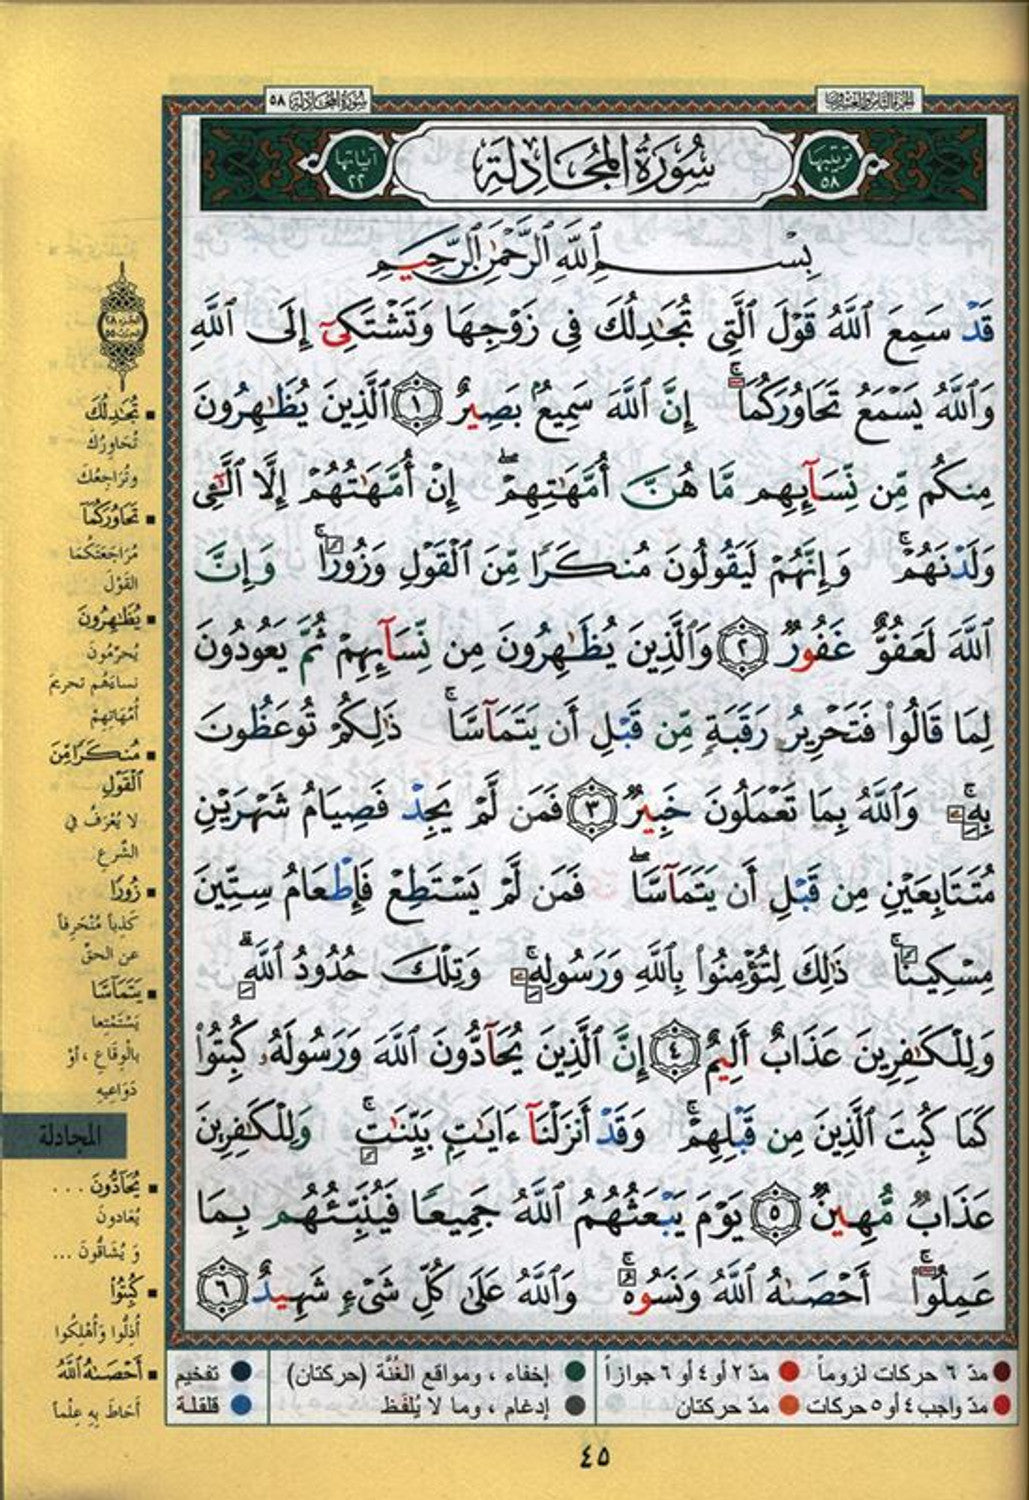 الجزء الثامن والعشرون
سُورَةُ المُجَادِلَة ٥٨
ترتيبها ٥٨
سُورَةُ المُجَادِلَة
آياتها ٢٢
بِسْمِ ٱللَّهِ ٱلرَّحْمَٰنِ ٱلرَّحِيمِ
قَدْ سَمِعَ ٱللَّهُ قَوْلَ ٱلَّتِى تُجَٰدِلُكَ فِى زَوْجِهَا وَتَشْتَكِىٓ إِلَى ٱللَّهِ
وَٱللَّهُ يَسْمَعُ تَحَاوُرَكُمَآ ۚ إِنَّ ٱللَّهَ سَمِيعٌۢ بَصِيرٌ ١ ٱلَّذِينَ يُظَٰهِرُونَ
مِنكُم مِّن نِّسَآئِهِم مَّا هُنَّ أُمَّهَٰتِهِمْ ۖ إِنْ أُمَّهَٰتُهُمْ إِلَّا ٱلَّٰٓـِٔى
وَلَدْنَهُمْ ۚ وَإِنَّهُمْ لَيَقُولُونَ مُنكَرًا مِّنَ ٱلْقَوْلِ وَزُورًا ۚ وَإِنَّ
ٱللَّهَ لَعَفُوٌّ غَفُورٌ ٢ وَٱلَّذِينَ يُظَٰهِرُونَ مِن نِّسَآئِهِمْ ثُمَّ يَعُودُونَ
لِمَا قَالُوا۟ فَتَحْرِيرُ رَقَبَةٍ مِّن قَبْلِ أَن يَتَمَآسَّا ۚ ذَٰلِكُمْ تُوعَظُونَ
بِهِۦ ۚ وَٱللَّهُ بِمَا تَعْمَلُونَ خَبِيرٌ ٣ فَمَن لَّمْ يَجِدْ فَصِيَامُ شَهْرَيْنِ
مُتَتَابِعَيْنِ مِن قَبْلِ أَن يَتَمَآسَّا ۖ فَمَن لَّمْ يَسْتَطِعْ فَإِطْعَامُ سِتِّينَ
مِسْكِينًا ۚ ذَٰلِكَ لِتُؤْمِنُوا۟ بِٱللَّهِ وَرَسُولِهِۦ ۚ وَتِلْكَ حُدُودُ ٱللَّهِ ۗ
وَلِلْكَٰفِرِينَ عَذَابٌ أَلِيمٌ ٤ إِنَّ ٱلَّذِينَ يُحَآدُّونَ ٱللَّهَ وَرَسُولَهُۥ كُبِتُوا۟
كَمَا كُبِتَ ٱلَّذِينَ مِن قَبْلِهِمْ ۚ وَقَدْ أَنزَلْنَآ ءَايَٰتٍۭ بَيِّنَٰتٍ ۚ وَلِلْكَٰفِرِينَ
عَذَابٌ مُّهِينٌ ٥ يَوْمَ يَبْعَثُهُمُ ٱللَّهُ جَمِيعًا فَيُنَبِّئُهُم بِمَا
عَمِلُوٓا۟ ۚ أَحْصَىٰهُ ٱللَّهُ وَنَسُوهُ ۚ وَٱللَّهُ عَلَىٰ كُلِّ شَىْءٍ شَهِيدٌ ٦
▪ تُجَٰدِلُكَ
تُحَاوِرُكَ
وتُرَاجِعُكَ
▪ تَحَاوُرَكُمَآ
مُرَاجَعَتَكُمَا
القَوْلَ
▪ يُظَٰهِرُونَ
يُحَرِّمُونَ
نساءَهُم تحريمَ
أُمَّهَاتِهِمْ
▪ مُنكَرًا مِّنَ
ٱلْقَوْلِ
لا يُعْرَفُ في
الشَّرعِ
▪ زُورًا
كَذِباً مُنْحَرِفاً
عن الحقّ
▪ يَتَمَآسَّا
يَسْتَمْتِعا
بالْوِقَاعِ ، أوْ
دَوَاعِيهِ
المجادلة
▪ يُحَآدُّونَ ...
يُعَادونَ
وَ يُشَاقُّونَ ...
▪ كُبِتُوا۟
أُذِلُّوا وَأُهْلِكُوا
▪ أَحْصَىٰهُ ٱللَّهُ
أَحَاطَ بِهِ عِلْماً
مدّ ٦ حركات لزوماً مدّ ٢ أو ٤ أو ٦ جوازاً إخفاء ، ومواقع الغُنَّة (حركتان) تفخيم
مدّ واجب ٤ أو ٥ حركات مدّ حركتان إدغام ، وما لا يُلفَظ قلقلة
٤٥